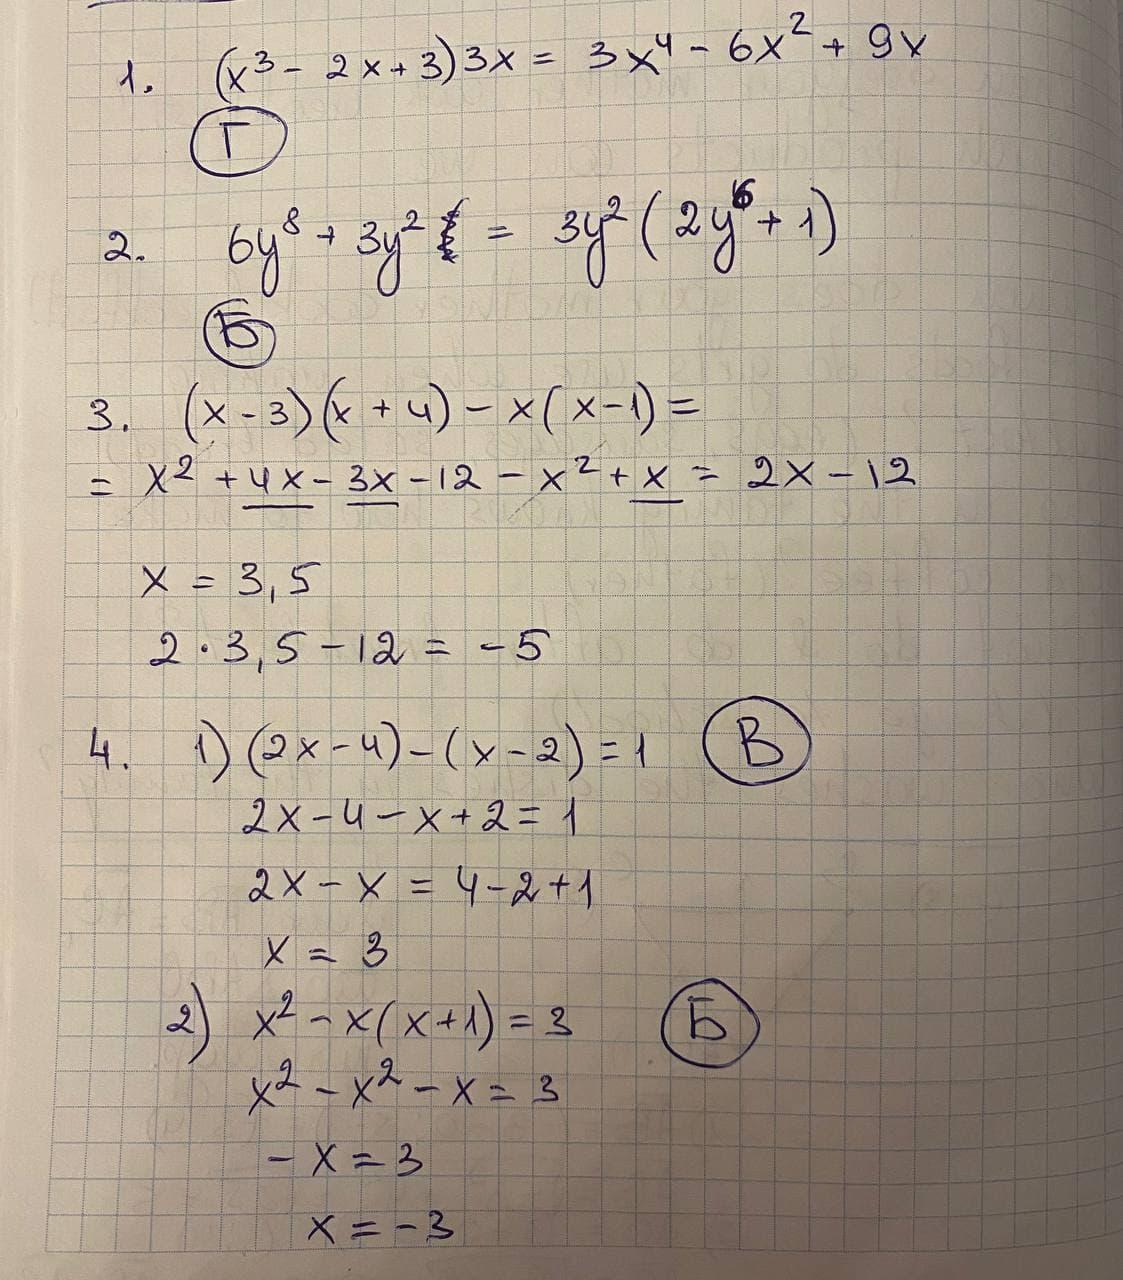 1. (x³ - 2x + 3)3x = 3x⁴ - 6x² + 9x
Г
2. 6y⁸ + 3y² = 3y²(2y⁶ + 1)
Б
3. (x - 3)(x + 4) - x(x - 1) =
= x² + 4x - 3x - 12 - x² + x = 2x - 12
x = 3,5
2 · 3,5 - 12 = -5
4. 1) (2x - 4) - (x - 2) = 1 В
2x - 4 - x + 2 = 1
2x - x = 4 - 2 + 1
x = 3
2) x² - x(x + 1) = 3 Б
x² - x² - x = 3
- x = 3
x = -3